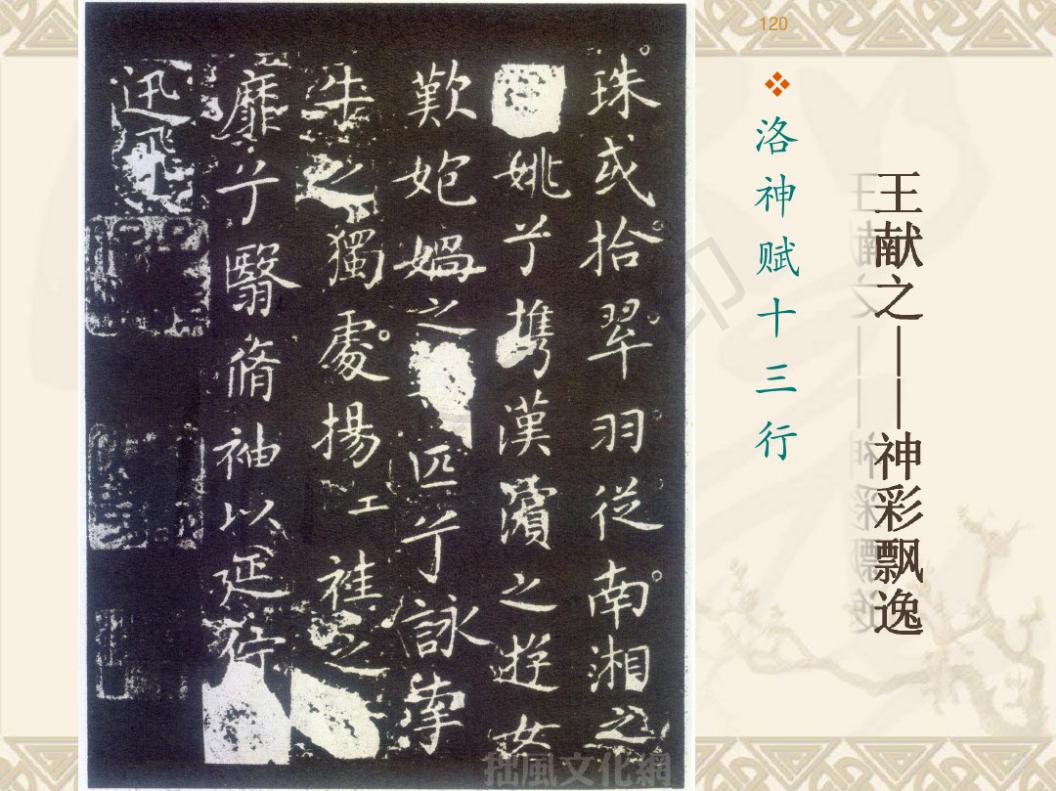 120
王献之——神彩飘逸
洛神赋十三行
珠或拾翠羽從南湘之
姚兮攜漢濱之遊女
歎媧之匹兮詠牽
牛之獨處揚工袿之
靡兮翳脩袖以延佇
迅飛
拙風文化網
印